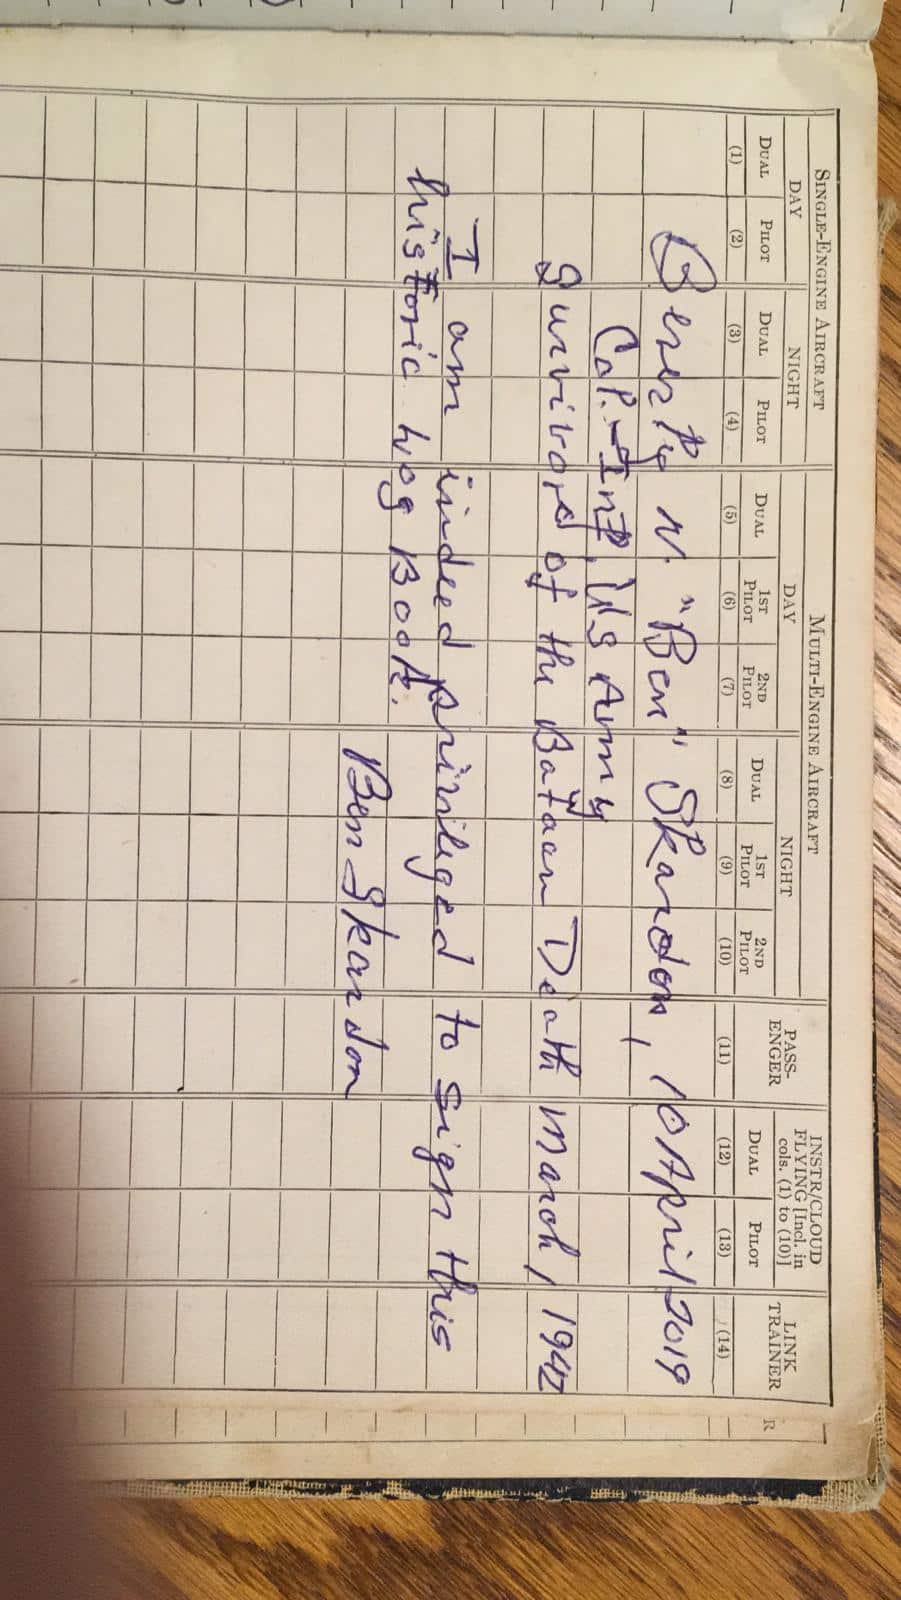 SINGLE-ENGINE AIRCRAFT MULTI-ENGINE AIRCRAFT PASS-ENGER INSTR/CLOUD FLYING [Incl. in cols. (1) to (10)] LINK TRAINER
DAY NIGHT DAY NIGHT
DUAL PILOT DUAL PILOT DUAL 1ST PILOT 2ND PILOT DUAL 1ST PILOT 2ND PILOT DUAL PILOT R
(1) (2) (3) (4) (5) (6) (7) (8) (9) (10) (11) (12) (13) (14)
Beverly N. "Ben" Skardon, 10 April 2019
Col. Inf, US Army
Survivor of the Bataan Death March, 1942
I am indeed privileged to sign this
historic Log Book.
Ben Skardon